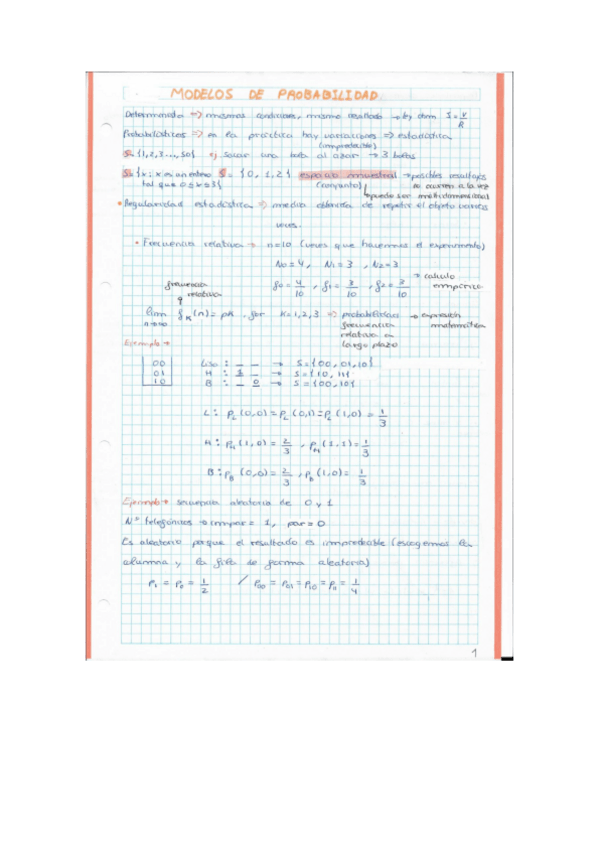 MODELOS DE PROBABILIDAD
Determinista => mismas condiciones, mismo resultado → ley ohm I = V/R
Probabilísticos => en la práctica hay variaciones => estadística
(impredecible)
S = {1,2,3...,50} => sacar una bola al azar → 3 bolas
S = {x ; x es un entero tal que 0 ≤ x ≤ 3} S = {0, 1, 2} espacio muestral → posibles resultados
(conjunto) no ocurren a la vez
puede ser multidimensional
• Regularidad estadística => media obtenida de repetir el objeto varias
veces.
• Frecuencia relativa => n=10 (veces que hacemos el experimento)
N0 = 4, N1 = 3, N2 = 3
frecuencia relativa f0 = 4/10, f1 = 3/10, f2 = 3/10 → cálculo empírico
lim n→∞ fk(n) = pk, for k = 1,2,3 => probabilísticas → expresión matemática
frecuencia
relativa a
largo plazo
Ejemplo →
00 Liso : _ _ → S = {00, 01, 10}
01 H : 1 _ → S = {10, 11}
10 B : _ 0 → S = {00, 10}
L : PL (0,0) = PL (0,1) = PL (1,0) = 1/3
H : PH (1,0) = 2/3, PH (1,1) = 1/3
B : PB (0,0) = 2/3, Pb (1,0) = 1/3
Ejemplo → secuencia aleatoria de 0 y 1
Nº telefónicos → impar = 1, par = 0
Es aleatorio porque el resultado es impredecible (escogemos la
columna y la fila de forma aleatoria)
P1 = P0 = 1/2 / P00 = P01 = P10 = P11 = 1/4
1